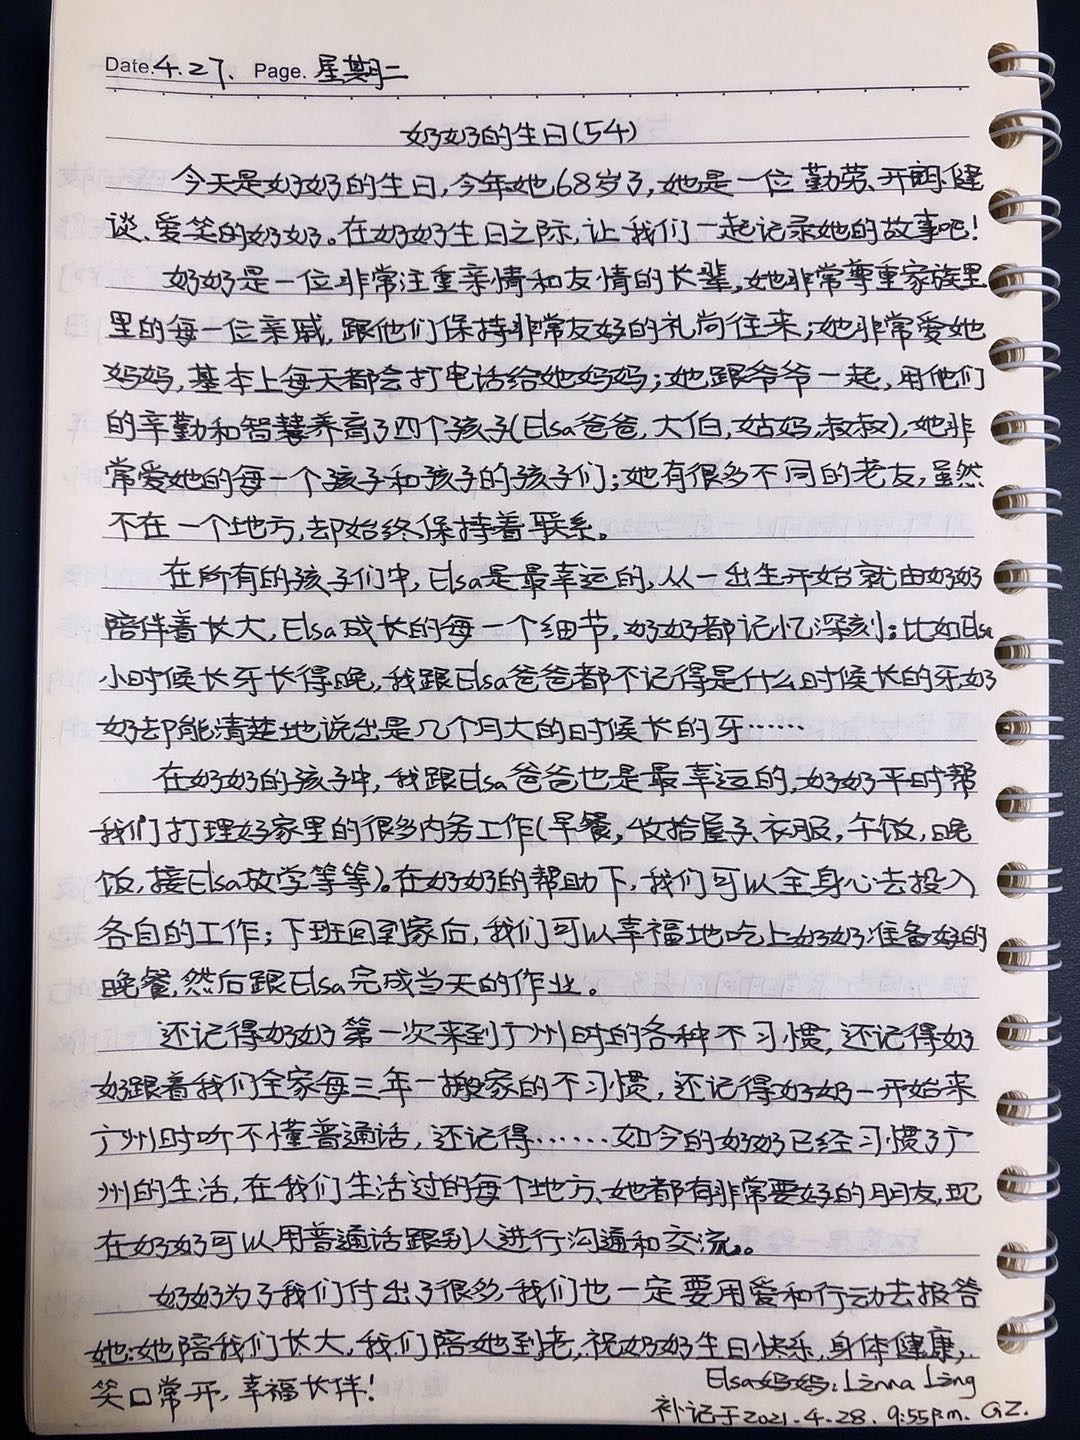 Date.4.27. Page.星期二
奶奶的生日(54)
今天是奶奶的生日,今年她68岁了,她是一位勤劳、开朗、健
谈、爱笑的奶奶。在奶奶生日之际,让我们一起记录她的故事吧!
奶奶是一位非常注重亲情和友情的长辈,她非常尊重家族里
里的每一位亲戚,跟他们保持非常友好的礼尚往来;她非常爱她
妈妈,基本上每天都会打电话给她妈妈;她跟爷爷一起,用他们
的辛勤和智慧养育了四个孩子(Elsa爸爸,大伯,姑妈,叔叔),她非
常爱她的每一个孩子和孩子的孩子们;她有很多不同的老友,虽然
不在一个地方,却始终保持着联系。
在所有的孩子们中,Elsa是最幸运的,从一出生开始就由奶奶
陪伴着长大,Elsa成长的每一个细节,奶奶都记忆深刻;比如Elsa
小时候长牙长得晚,我跟Elsa爸爸都不记得是什么时候长的牙,奶
奶却能清楚地说出是几个月大的时候长的牙……
在奶奶的孩子中,我跟Elsa爸爸也是最幸运的,奶奶平时帮
我们打理好家里的很多内务工作(早餐,收拾屋子、衣服,午饭,晚
饭,接Elsa放学等等)。在奶奶的帮助下,我们可以全身心去投入
各自的工作;下班回到家后,我们可以幸福地吃上奶奶准备好的
晚餐,然后跟Elsa完成当天的作业。
还记得奶奶第一次来到广州时的各种不习惯,还记得奶
奶跟着我们全家每三年一搬家的不习惯,还记得奶奶一开始来
广州时听不懂普通话,还记得……如今的奶奶已经习惯了广
州的生活,在我们生活过的每个地方、她都有非常要好的朋友,现
在奶奶可以用普通话跟别人进行沟通和交流。
奶奶为了我们付出了很多,我们也一定要用爱和行动去报答
她:她陪我们长大,我们陪她到老,祝奶奶生日快乐,身体健康,
笑口常开,幸福长伴!
Elsa妈妈:Linna Ling
补记于2021.4.28. 9:55p.m. GZ.